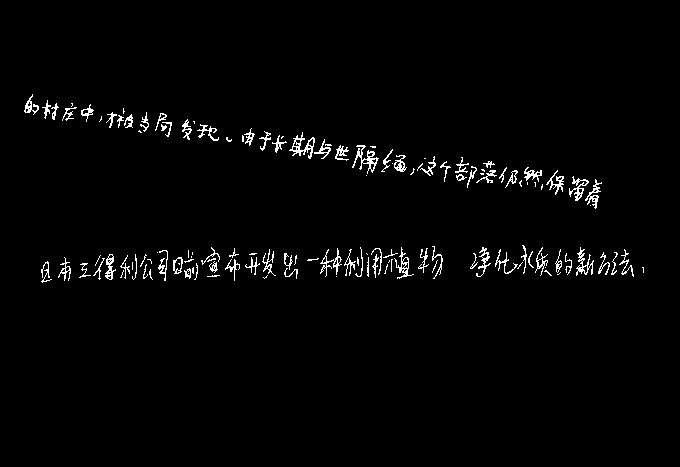 的村庄中,才被当局发现。由于长期与世隔绝,这个部落仍然保留着
日本三得利公司日前宣布开发出一种利用植物 净化水质的新方法,